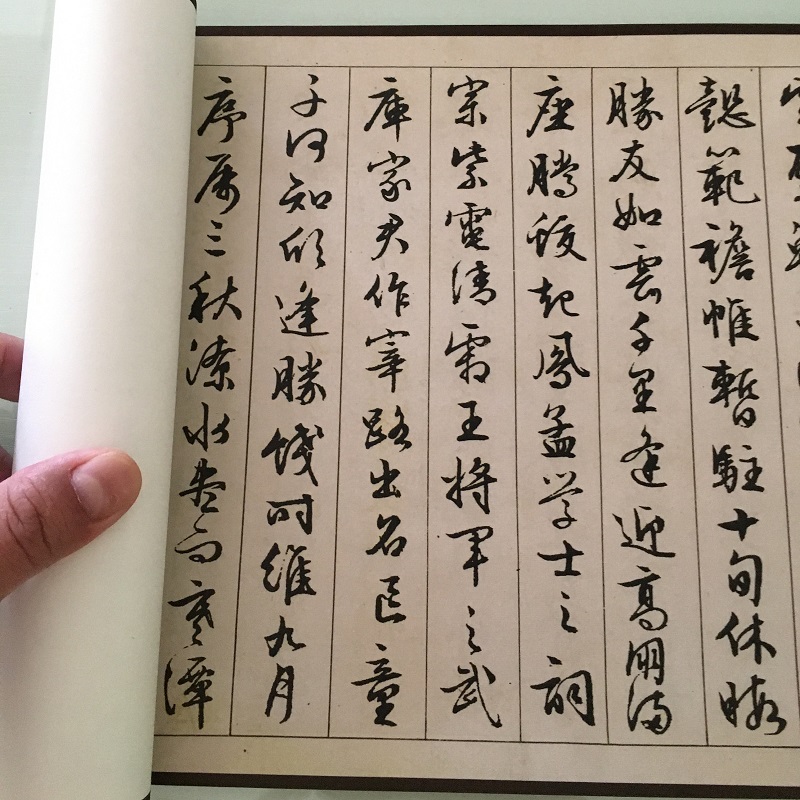 懿範襜帷暫駐十旬休暇
勝友如雲千里逢迎高朋滿
座騰蛟起鳳孟学士之詞
宗紫電清霜王將軍之武
庫家君作宰路出名區童
子何知躬逢勝餞時維九月
序屬三秋潦水盡而寒潭